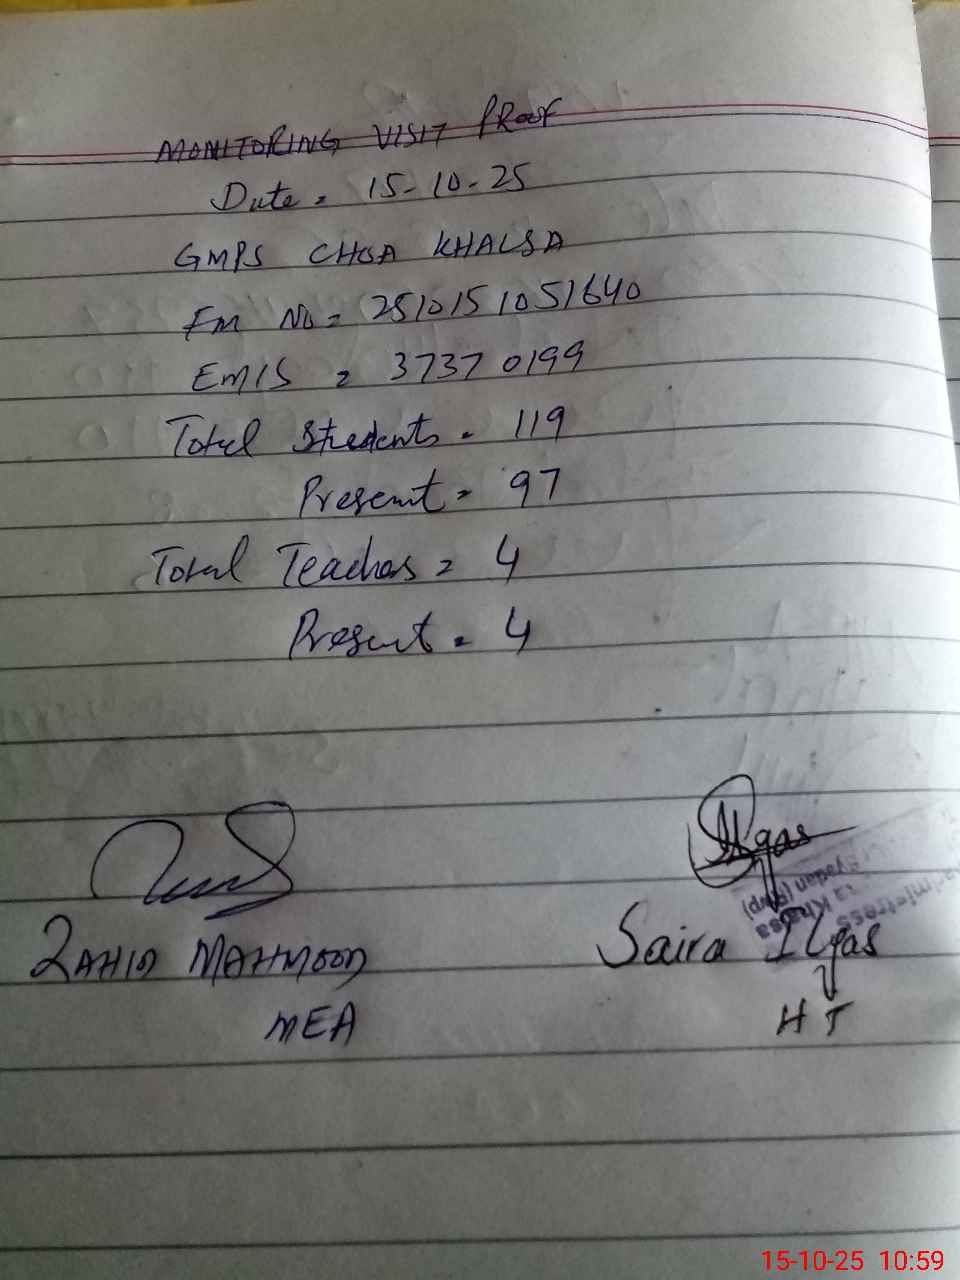 MONITORING VISIT PROOF
Date = 15-10-25
GMPS CHOA KHALSA
Em No = 2510151051640
EMIS = 37370199
Total Students = 119
Present = 97
Total Teachers = 4
Present = 4
Ilyas
ZAHID MAHMOOD
Saira Ilyas
MEA
HT
15-10-25 10:59